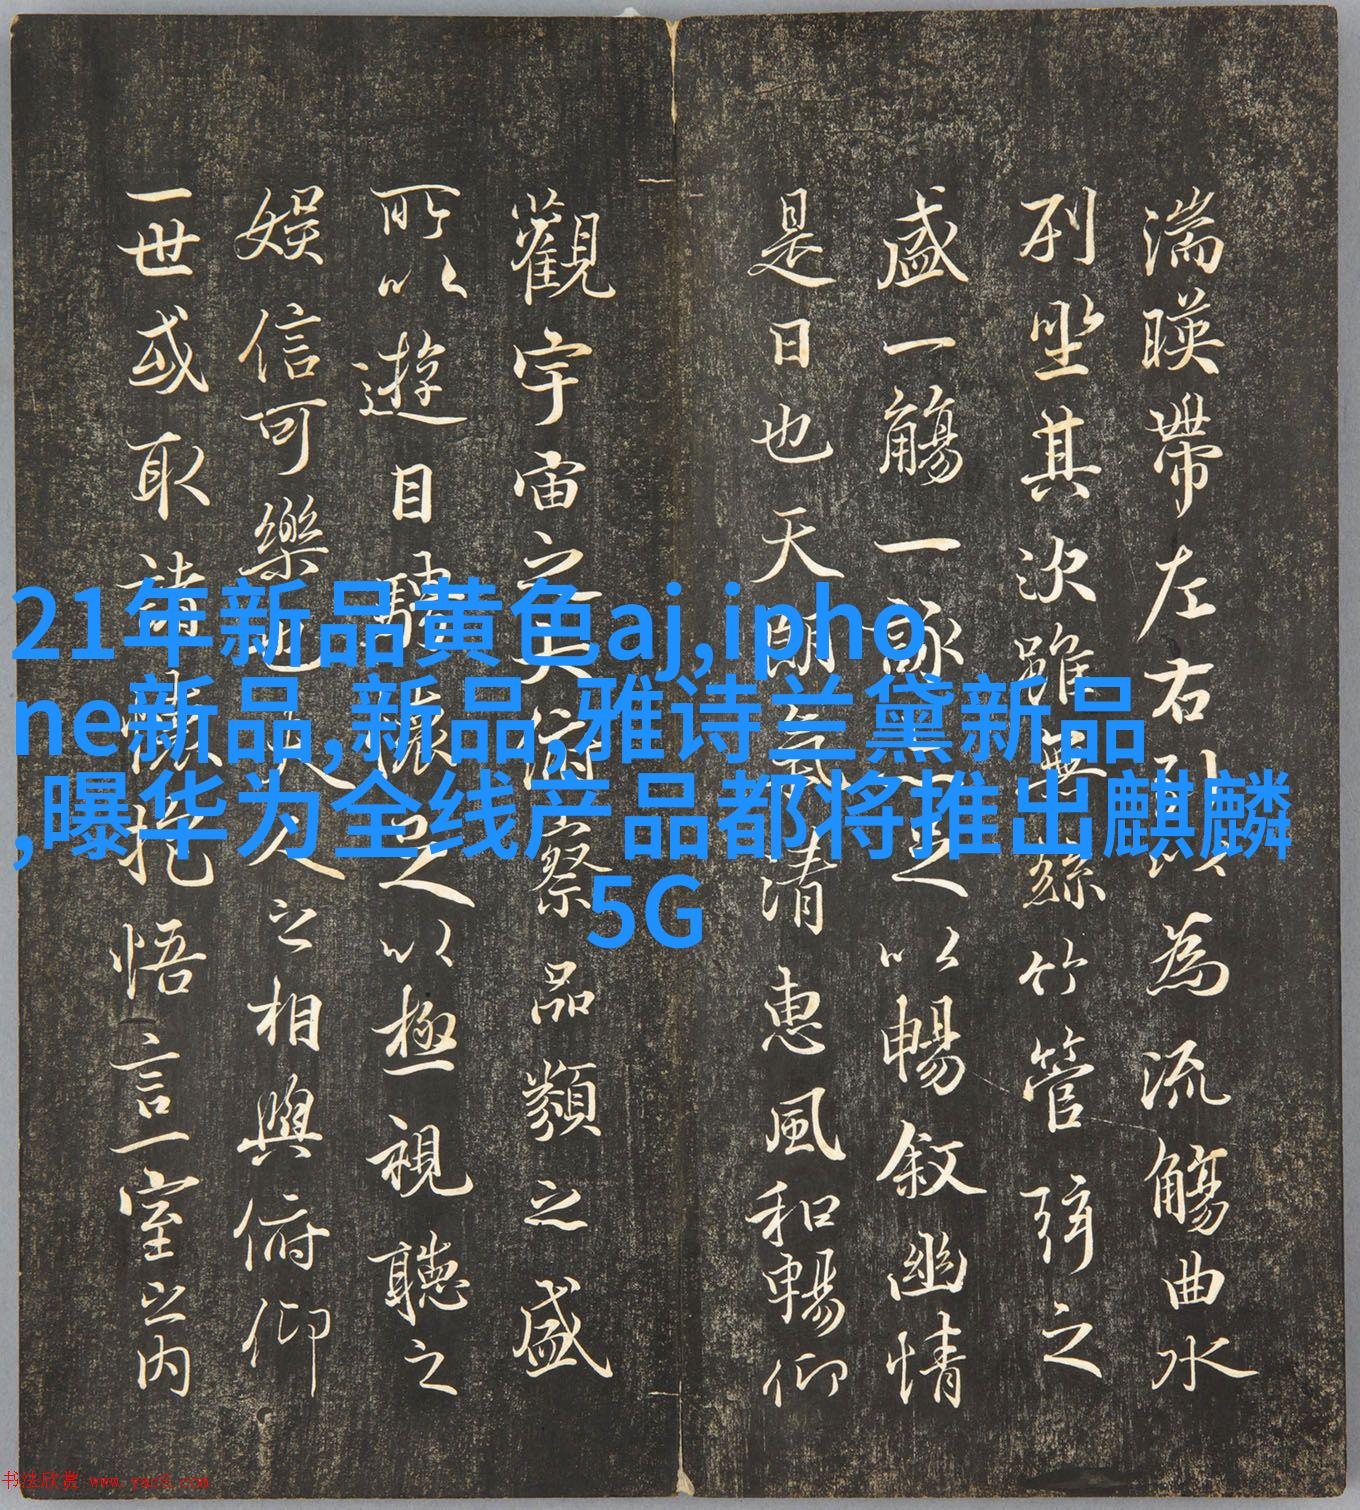 湍暎帶左右引以為流觴曲水
列坐其次雖無絲竹管弦之
盛一觴一詠亦足以暢敘幽情
是日也天朗氣清惠風和暢仰
觀宇宙之大俯察品類之盛
所以遊目騁懷足以極視聽之
娛信可樂也夫人之相與俯仰
一世或取諸懷抱悟言一室之内
21年新品黄色aj,ipho
ne新品,新品,雅诗兰黛新品
,曝华为全线产品都将推出麒麟
5G
书法欣赏 www.yac8.com